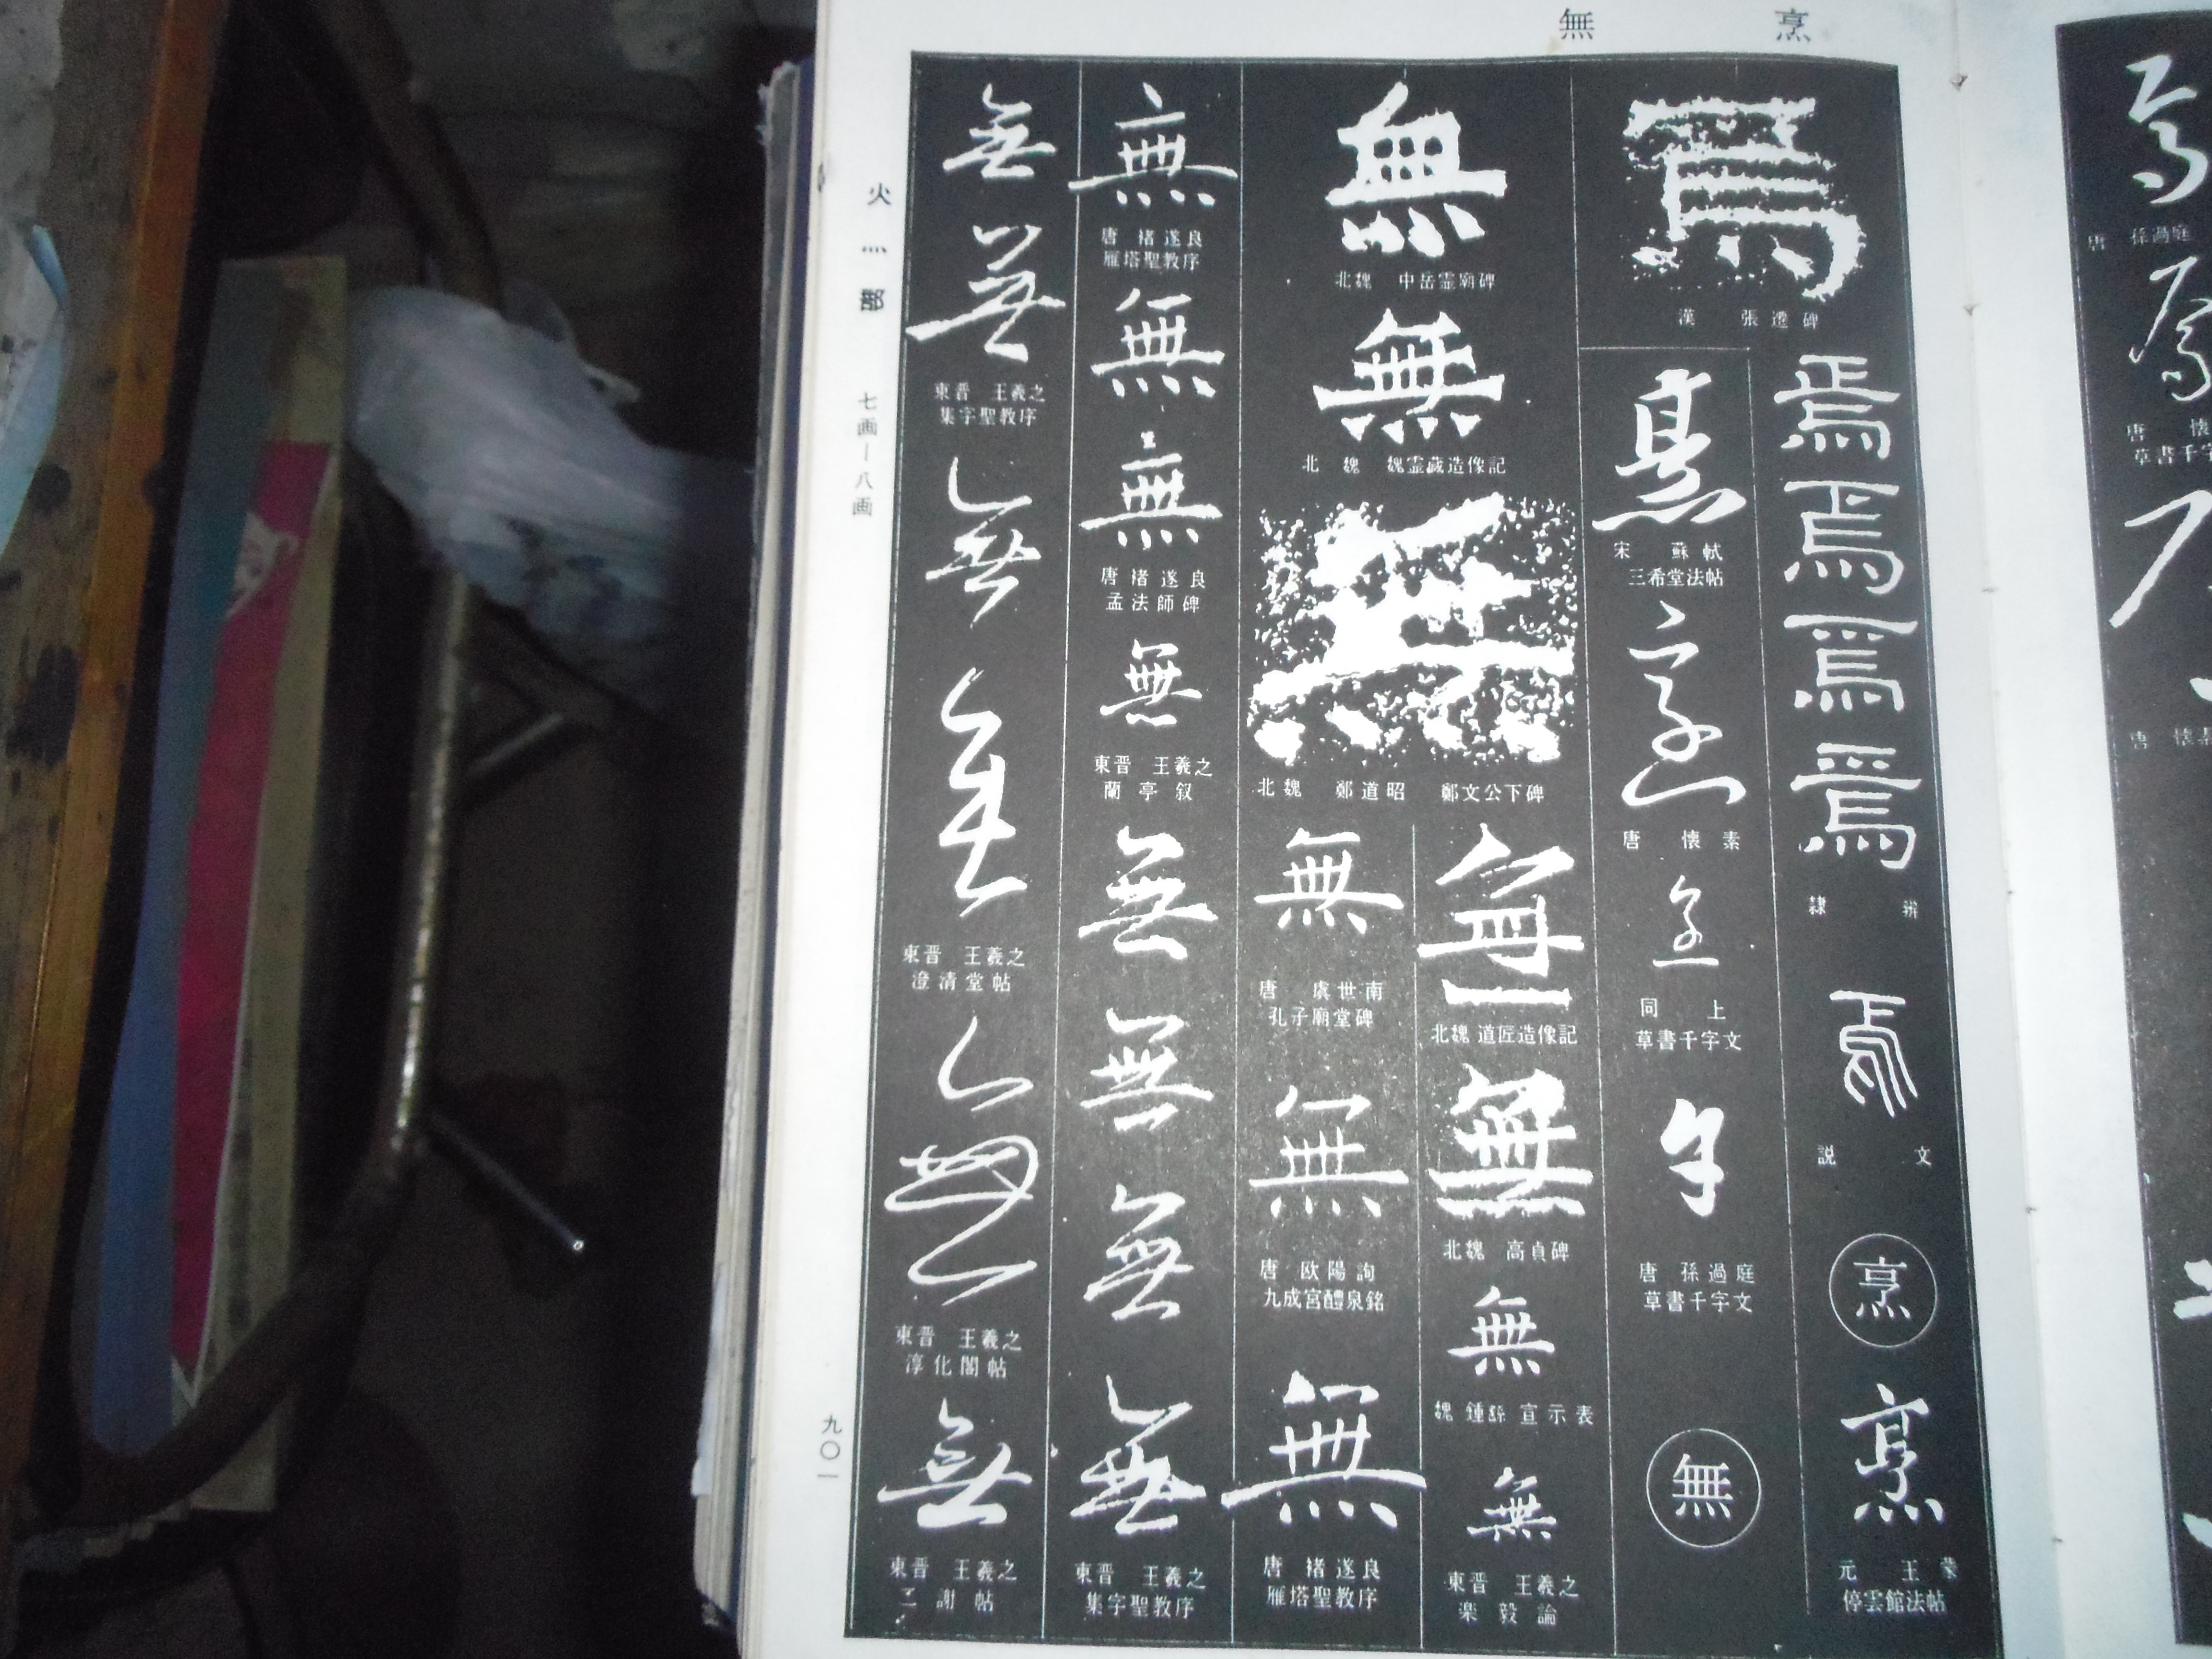 無 烹
焉
漢 張遷碑
焉
焉
焉
焉
隷 辨
焉
説 文
烹
烹
元 王蒙
停雲館法帖
烹
宋 蘇軾
三希堂法帖
烹
唐 懐素
烹
同 上
草書千字文
唐 孫過庭
草書千字文
無
無
北魏 中岳霊廟碑
無
北魏 魏霊蔵造像記
無
北魏 鄭道昭 鄭文公下碑
無
北魏 道匠造像記
無
北魏 高貞碑
無
魏 鍾繇 宣示表
無
東晋 王羲之
楽毅論
無
唐 虞世南
孔子廟堂碑
無
唐 欧陽詢
九成宮醴泉銘
無
唐 褚遂良
雁塔聖教序
無
唐 褚遂良
雁塔聖教序
無
無
唐 褚遂良
孟法師碑
無
東晋 王羲之
蘭亭叙
無
無
無
無
東晋 王羲之
集字聖教序
無
無
東晋 王羲之
集字聖教序
無
無
東晋 王羲之
澄清堂帖
無
東晋 王羲之
淳化閣帖
無
東晋 王羲之
二謝帖
火灬部
七画—八画
九〇一
唐 孫過庭
唐 懐
草書千字
唐 懐素